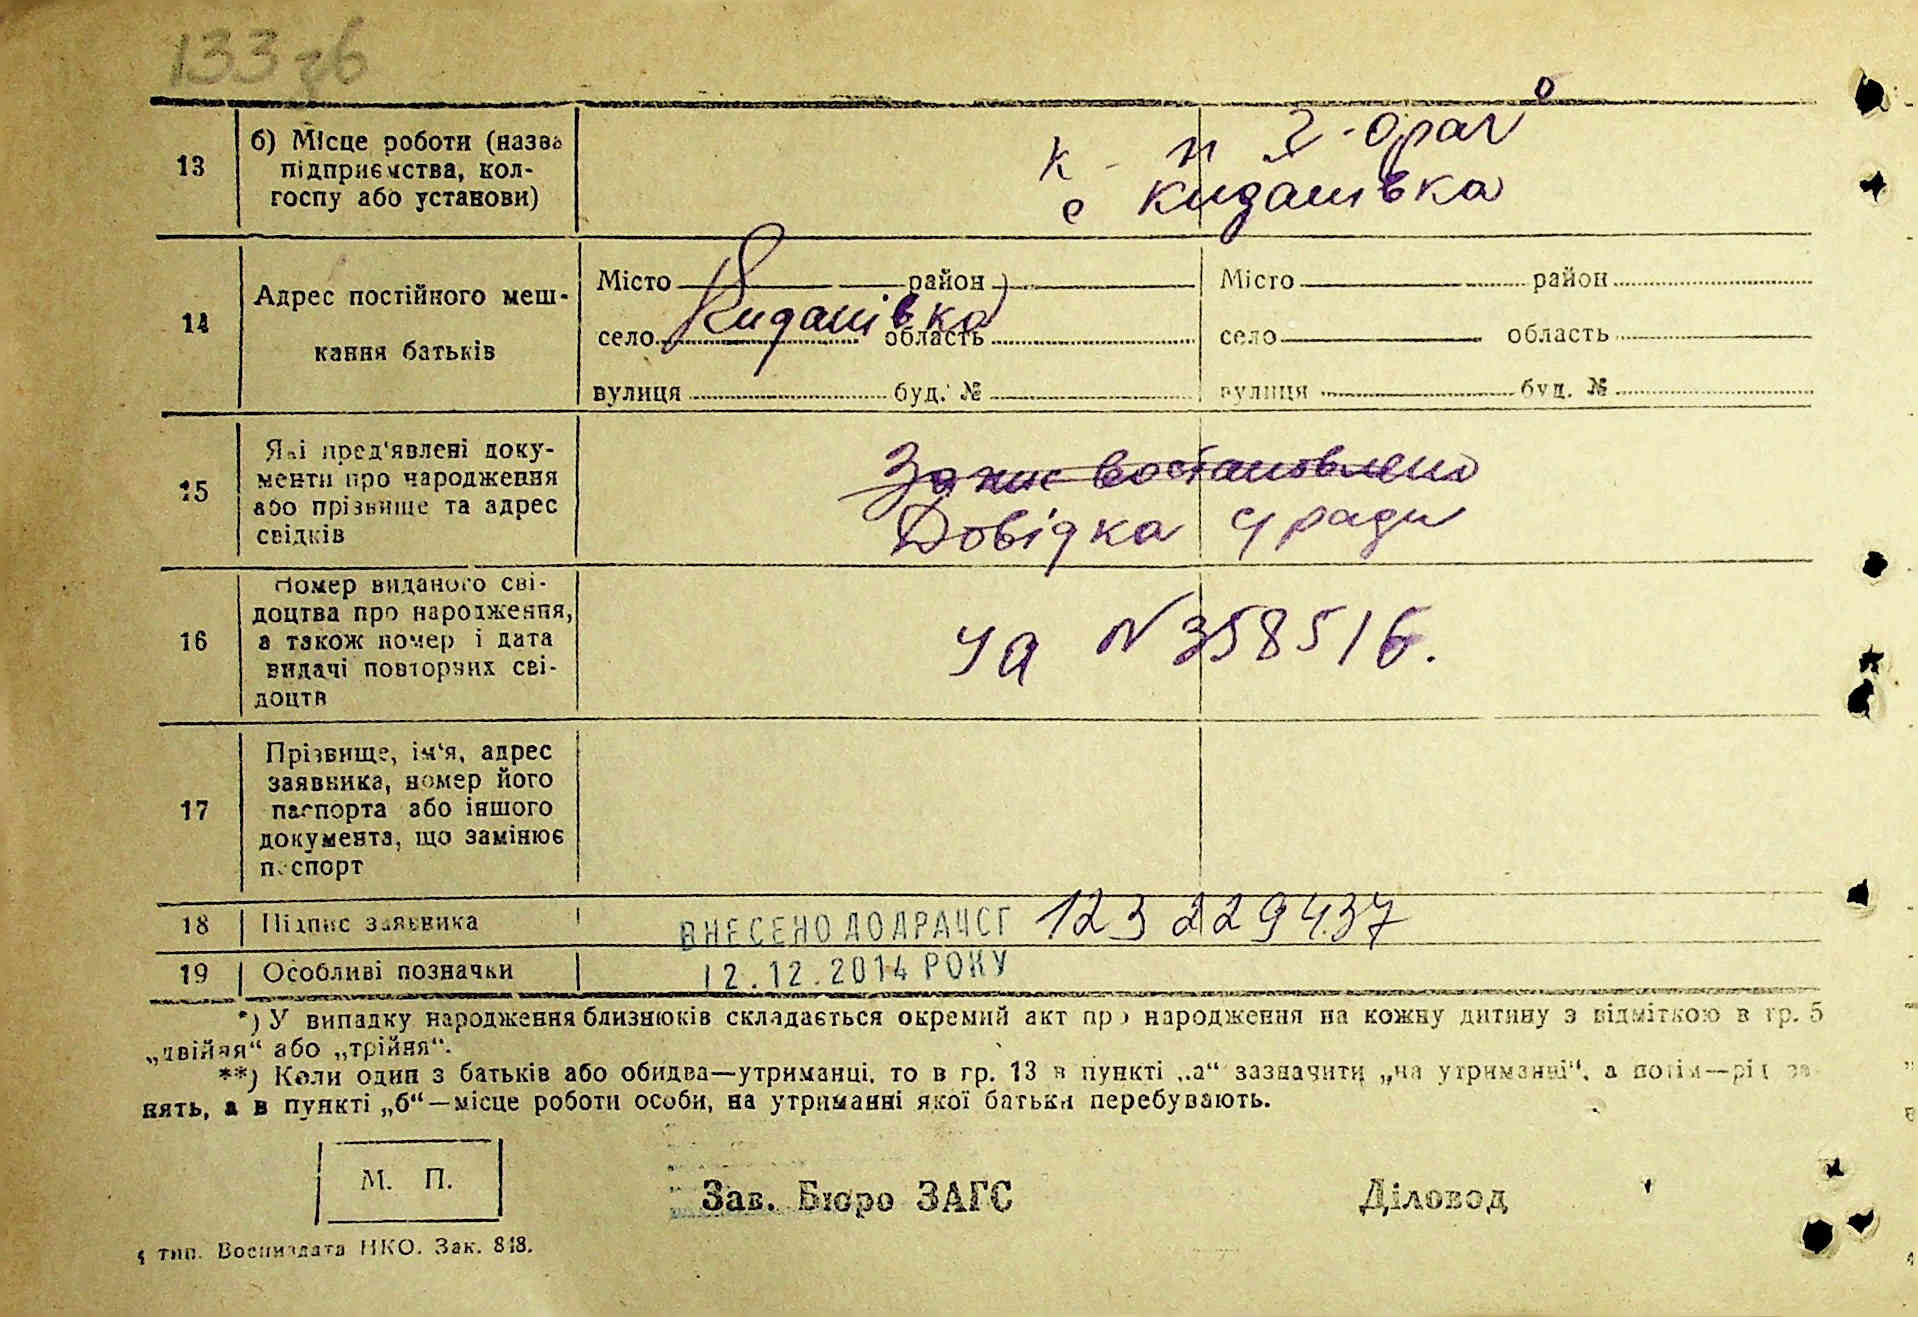 133 зв
13
б) Місце роботи (назва
підприємства, кол-
госпу або установи)
к - п
с Кидашівка
14
Адрес постійного меш-
кання батьків
Місто район
село Кидашівка область
вулиця буд. №
Місто район
село область
вулиця буд. №
15
Які пред'явлені доку-
менти про народження
або прізвище та адрес
свідків
Запис востановлено
Довідка с/ради
16
Номер виданого сві-
доцтва про народження,
а також номер і дата
видачі повторних сві-
доцтв
УА N 358516.
17
Прізвище, ім'я, адрес
заявника, номер його
паспорта або іншого
документа, що замінює
паспорт
18
Підпис заявника
ВНЕСЕНО ДО ДРАЦСГ
19
Особливі позначки
12.12.2014 РОКУ
*) У випадку народження близнюків складається окремий акт про народження на кожну дитину з відміткою в гр. 5
„двійня“ або „трійня“.
**) Коли один з батьків або обидва—утриманці, то в гр. 13 в пункті „а“ зазначити „на утриманні“, а потім—рід за-
нять, а в пункті „б“—місце роботи особи, на утриманні якої батьки перебувають.
М. П.
Зав. Бюро ЗАГС
Діловод
тип. Воениздата НКО. Зак. 848.